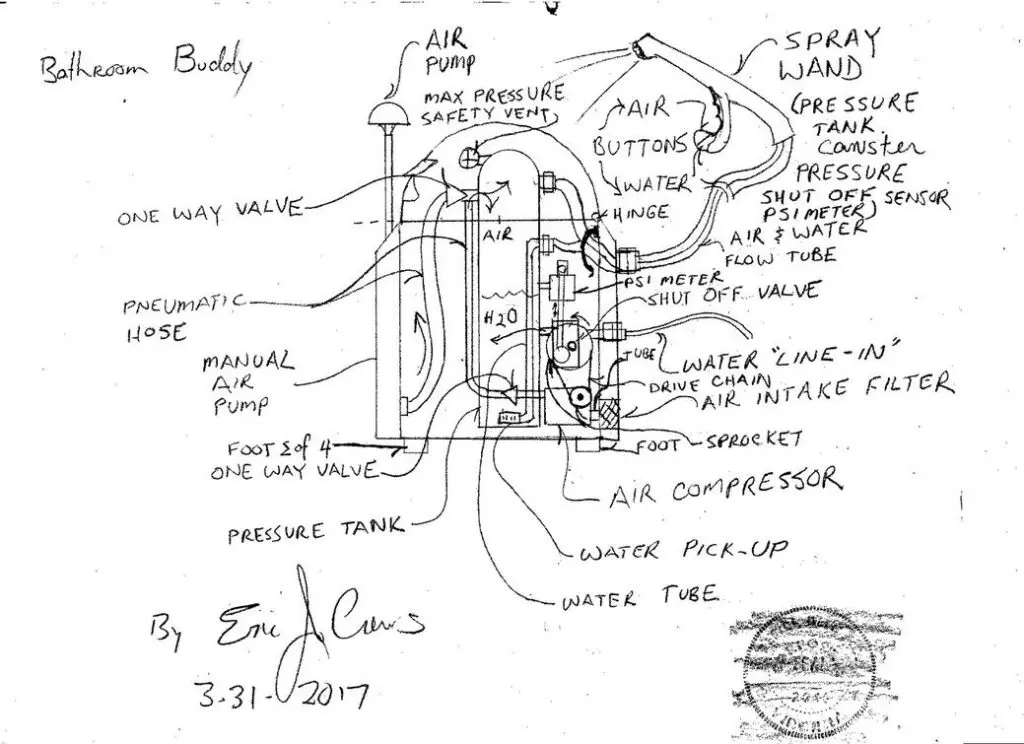 Bathroom Buddy
AIR
PUMP
MAX PRESSURE
SAFETY VENT
SPRAY
WAND
(PRESSURE
TANK
Canister
PRESSURE
SHUT OFF SENSOR
PSI METER)
AIR
BUTTONS
WATER
HINGE
AIR & WATER
FLOW TUBE
ONE WAY VALVE
AIR
PSI METER
SHUT OFF VALVE
PNEUMATIC
HOSE
H2O
WATER "LINE-IN"
TUBE
MANUAL
AIR
PUMP
DRIVE CHAIN
AIR INTAKE FILTER
FOOT 2 of 4
FOOT
SPROCKET
ONE WAY VALVE
AIR COMPRESSOR
PRESSURE TANK
WATER PICK-UP
WATER TUBE
By Eric A
3-31-2017